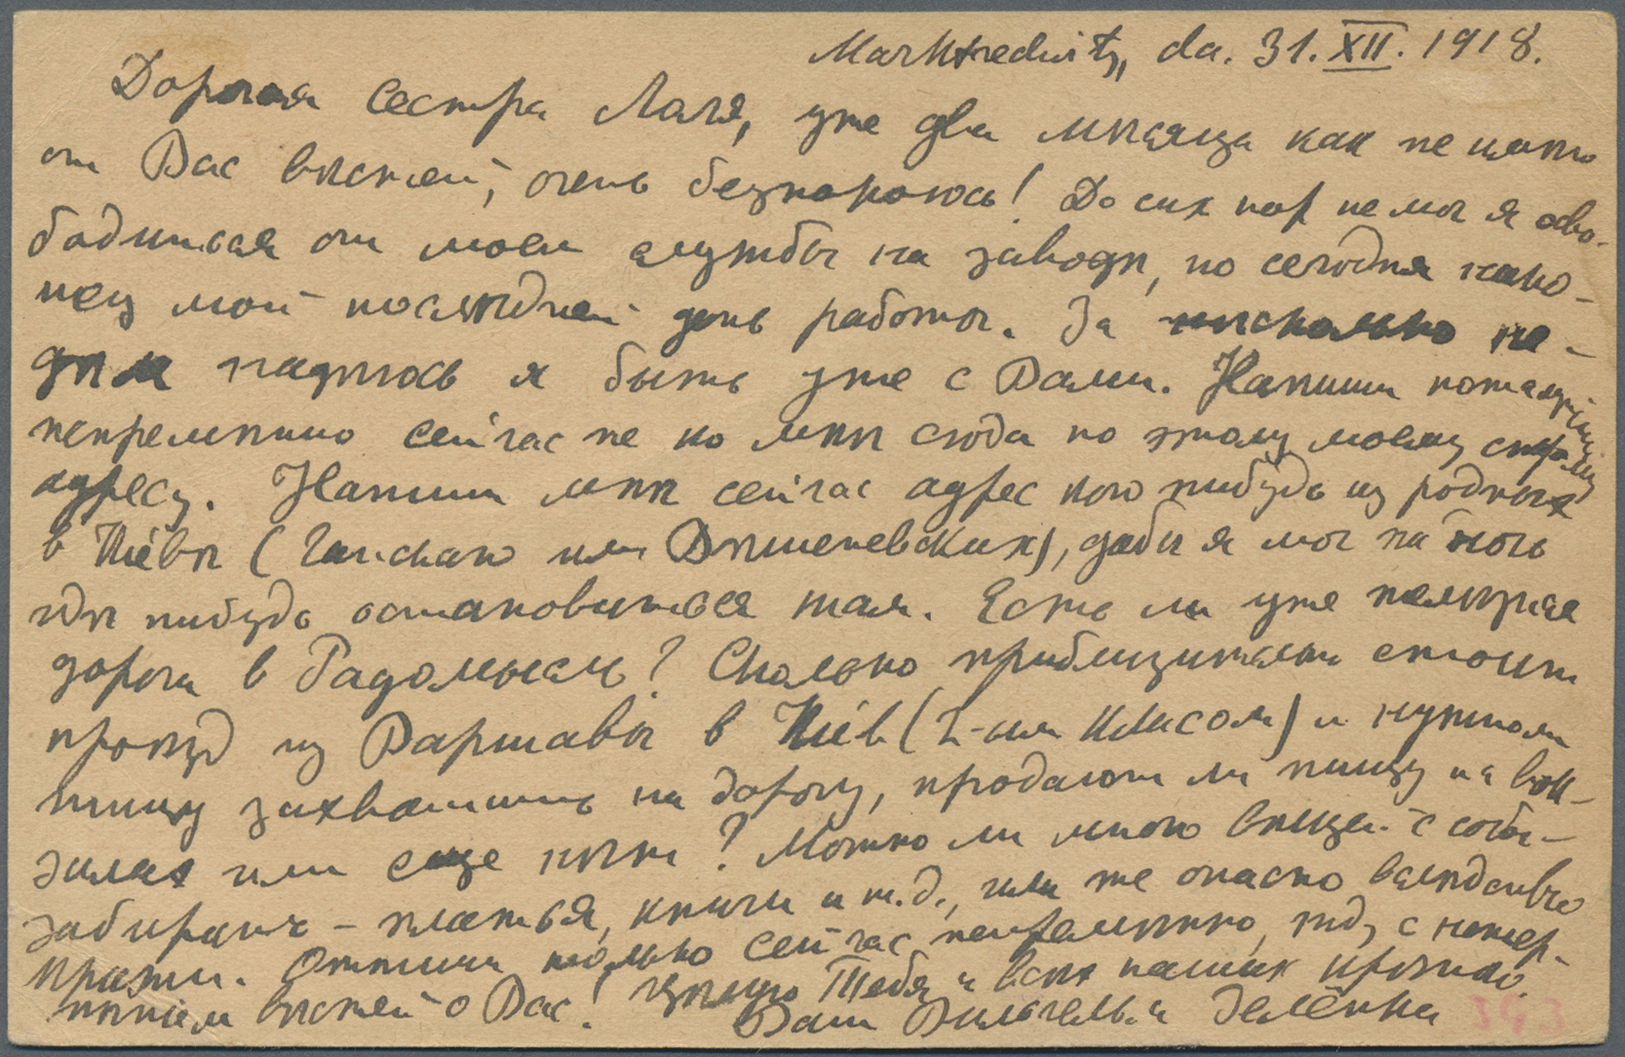 Marktredwitz, da. 31. XII. 1918.
Дорогая сестра Лаля, уже два мѣсяца как не имѣю
от Вас вѣстей, очень безпокоюсь! До сих пор не мог я осво-
бодиться от моей службы на заводѣ, но сегодня нако-
нец мой послѣдней день работы. За нѣсколько не-
дѣль надѣюсь я быть уже с Вами. Напиши пожалуйста
непремѣнно сейчас же ко мнѣ сюда по этому моему старому
адресу. Напиши мнѣ сейчас адрес кого нибудь из родных
в Кіевѣ ( или ), дабы я мог на ночь
гдѣ нибудь остановиться там. Есть ли уже желѣзная
дорога в Радомысль? Сколько приблизительно стоит
проѣзд из Варшавы в Кіев (I-ым класом) и нужно ли
пищу захватить на дорогу, продают ли пищу на вок-
залах или еще нѣт? Можно ли много вещей с собой
забирать - платья, книги и т. д., или же опасно вслѣдствие
кражи. Отпиши только сейчас непремѣнно, жду с нетер-
пѣнием вѣстей о Вас! Цѣлую Тебя и всѣх наших
Ваш Зелёнка
343